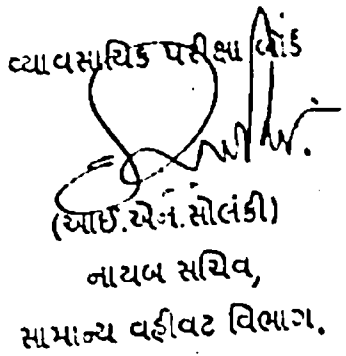 વ્યાવસાયિક પરીક્ષા બોર્ડ
(આઈ.એન.સોલંકી)
નાયબ સચિવ,
સામાન્ય વહીવટ વિભાગ.